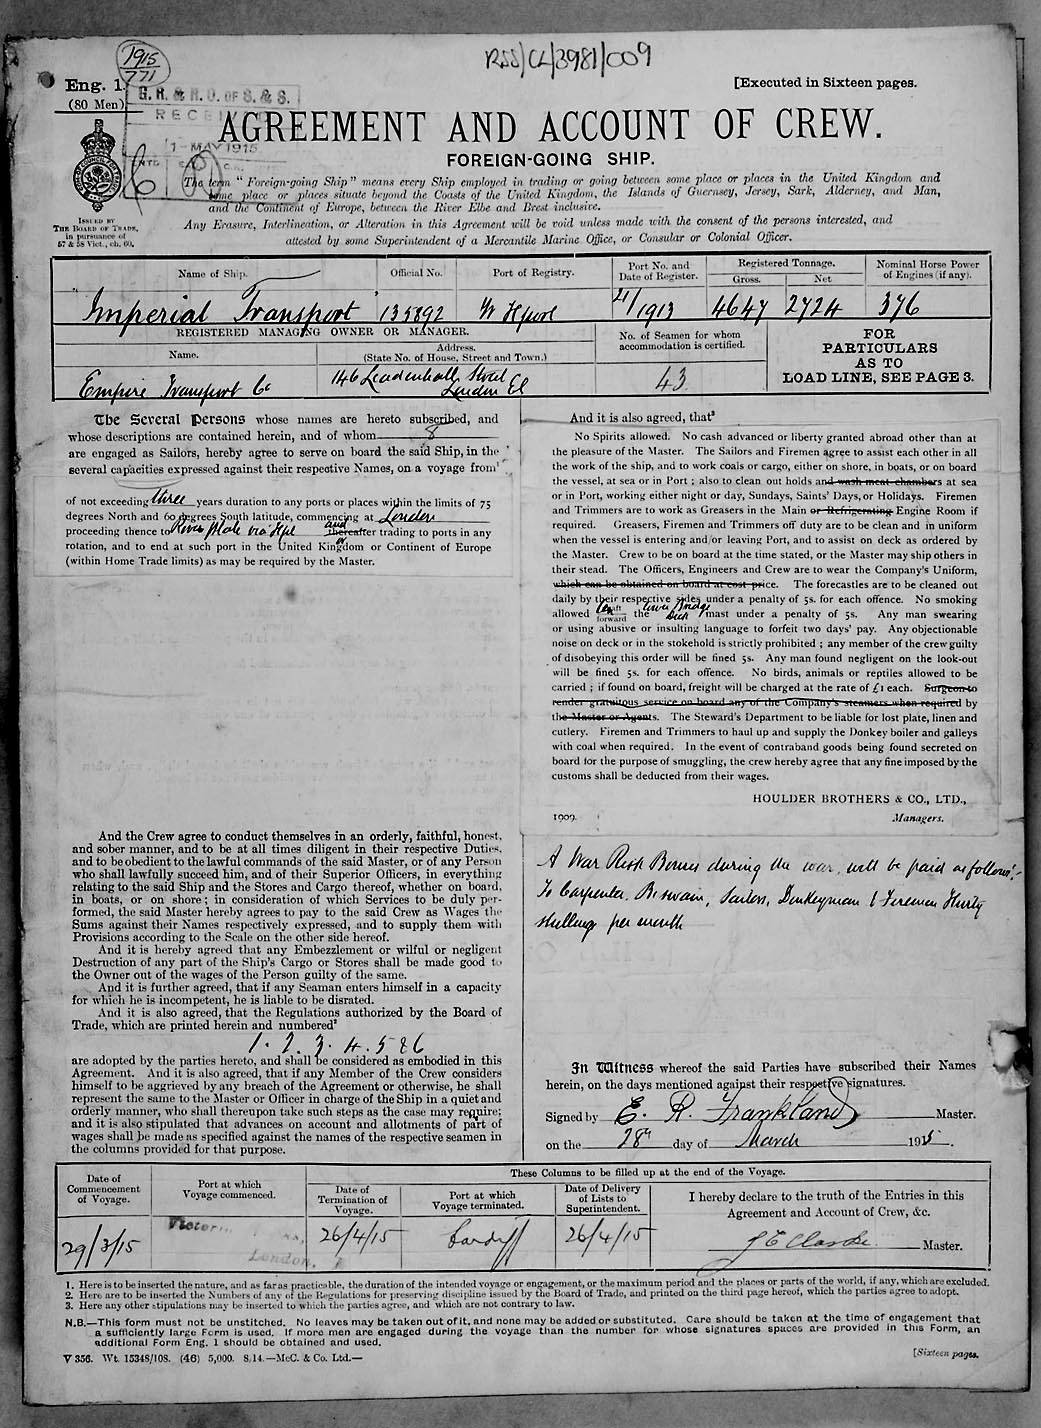 1915
771
RSS/CL/3981/009
Eng. 1.
(80 Men)
[Executed in Sixteen pages.
G. R. & R. O. OF S. & S.
1 - MAY 1915
AGREEMENT AND ACCOUNT OF CREW.
FOREIGN-GOING SHIP.
The term "Foreign-going Ship" means every Ship employed in trading or going between some place or places in the United Kingdom and
some place or places situate beyond the Coasts of the United Kingdom, the Islands of Guernsey, Jersey, Sark, Alderney, and Man,
and the Continent of Europe, between the River Elbe and Brest inclusive.
Any Erasure, Interlineation, or Alteration in this Agreement will be void unless made with the consent of the persons interested, and
attested by some Superintendent of a Mercantile Marine Office, or Consular or Colonial Officer.
ISSUED BY
THE BOARD OF TRADE,
in pursuance of
57 & 58 Vict., ch. 60.
Name of Ship. Official No. Port of Registry. Port No. and Date of Register. Registered Tonnage. Gross. Net Nominal Horse Power of Engines (if any).
Imperial Transport 135892 W Hpool 21/1913 4647 2724 376
REGISTERED MANAGING OWNER OR MANAGER.
Name. Address. (State No. of House, Street and Town.)
No. of Seamen for whom accommodation is certified.
FOR
PARTICULARS
AS TO
LOAD LINE, SEE PAGE 3.
Empire Transport Co 146 Leadenhall Street London EC 43
The Several Persons whose names are hereto subscribed, and
whose descriptions are contained herein, and of whom 8
are engaged as Sailors, hereby agree to serve on board the said Ship, in the
several capacities expressed against their respective Names, on a voyage from¹
of not exceeding three years duration to any ports or places within the limits of 75
degrees North and 60 degrees South latitude, commencing at London
proceeding thence to River Plate via Hpl and thereafter trading to ports in any
rotation, and to end at such port in the United Kingdom or Continent of Europe
(within Home Trade limits) as may be required by the Master.
And the Crew agree to conduct themselves in an orderly, faithful, honest,
and sober manner, and to be at all times diligent in their respective Duties,
and to be obedient to the lawful commands of the said Master, or of any Person
who shall lawfully succeed him, and of their Superior Officers, in everything
relating to the said Ship and the Stores and Cargo thereof, whether on board,
in boats, or on shore; in consideration of which Services to be duly per-
formed, the said Master hereby agrees to pay to the said Crew as Wages the
Sums against their Names respectively expressed, and to supply them with
Provisions according to the Scale on the other side hereof.
And it is hereby agreed that any Embezzlement or wilful or negligent
Destruction of any part of the Ship's Cargo or Stores shall be made good to
the Owner out of the wages of the Person guilty of the same.
And it is further agreed, that if any Seaman enters himself in a capacity
for which he is incompetent, he is liable to be disrated.
And it is also agreed, that the Regulations authorized by the Board of
Trade, which are printed herein and numbered²
1. 2. 3. 4. 5 & 6
are adopted by the parties hereto, and shall be considered as embodied in this
Agreement. And it is also agreed, that if any Member of the Crew considers
himself to be aggrieved by any breach of the Agreement or otherwise, he shall
represent the same to the Master or Officer in charge of the Ship in a quiet and
orderly manner, who shall thereupon take such steps as the case may require;
and it is also stipulated that advances on account and allotments of part of
wages shall be made as specified against the names of the respective seamen in
the columns provided for that purpose.
And it is also agreed, that³
No Spirits allowed. No cash advanced or liberty granted abroad other than at
the pleasure of the Master. The Sailors and Firemen agree to assist each other in all
the work of the ship, and to work coals or cargo, either on shore, in boats, or on board
the vessel, at sea or in Port; also to clean out holds and wash meat chambers at sea
or in Port, working either night or day, Sundays, Saints' Days, or Holidays. Firemen
and Trimmers are to work as Greasers in the Main or Refrigerating Engine Room if
required. Greasers, Firemen and Trimmers off duty are to be clean and in uniform
when the vessel is entering and/or leaving Port, and to assist on deck as ordered by
the Master. Crew to be on board at the time stated, or the Master may ship others in
their stead. The Officers, Engineers and Crew are to wear the Company's Uniform,
which can be obtained on board at cost price. The forecastles are to be cleaned out
daily by their respective sides under a penalty of 5s. for each offence. No smoking
allowed aft forward the Lower Bridge Deck mast under a penalty of 5s. Any man swearing
or using abusive or insulting language to forfeit two days' pay. Any objectionable
noise on deck or in the stokehold is strictly prohibited; any member of the crew guilty
of disobeying this order will be fined 5s. Any man found negligent on the look-out
will be fined 5s. for each offence. No birds, animals or reptiles allowed to be
carried; if found on board, freight will be charged at the rate of £1 each. Surgeon to
render gratuitous service on board any of the Company's steamers when required by
the Master or Agents. The Steward's Department to be liable for lost plate, linen and
cutlery. Firemen and Trimmers to haul up and supply the Donkey boiler and galleys
with coal when required. In the event of contraband goods being found secreted on
board for the purpose of smuggling, the crew hereby agree that any fine imposed by the
customs shall be deducted from their wages.
HOULDER BROTHERS & CO., LTD.,
1909. Managers.
A War Risk Bonus during the war, will be paid as follows:-
To Carpenter, Boswain, Sailors, Donkeyman & Firemen Thirty
shillings per month
In Witness whereof the said Parties have subscribed their Names
herein, on the days mentioned against their respective signatures.
Signed by E. R. Frankland Master.
on the 28th day of March 1915.
Date of Commencement of Voyage. Port at which Voyage commenced.
These Columns to be filled up at the end of the Voyage.
Date of Termination of Voyage. Port at which Voyage terminated. Date of Delivery of Lists to Superintendent.
I hereby declare to the truth of the Entries in this
Agreement and Account of Crew, &c.
29/3/15 London. 26/4/15 Cardiff 26/4/15 J E Clarke Master.
1. Here is to be inserted the nature, and as far as practicable, the duration of the intended voyage or engagement, or the maximum period and the places or parts of the world, if any, which are excluded.
2. Here are to be inserted the Numbers of any of the Regulations for preserving discipline issued by the Board of Trade, and printed on the third page hereof, which the parties agree to adopt.
3. Here any other stipulations may be inserted to which the parties agree, and which are not contrary to law.
N.B.—This form must not be unstitched. No leaves may be taken out of it, and none may be added or substituted. Care should be taken at the time of engagement that
a sufficiently large Form is used. If more men are engaged during the voyage than the number for whose signatures spaces are provided in this Form, an
additional Form Eng. 1 should be obtained and used.
V 356. Wt. 15348/108. (46) 5,000. 8/14.—McC. & Co. Ltd.—
[Sixteen pages.